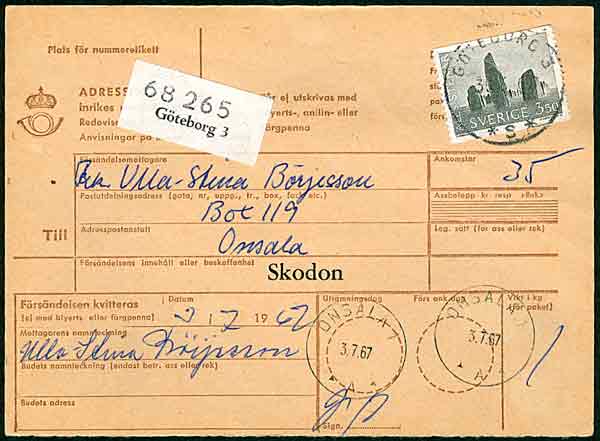 Plats för nummerlikett
ADRESS
inrikes
Redovis
Anvisningar på
68 265
Göteborg 3
år ej utskrivas med
blyerts-, anilin- eller
färgpenna
GÖTEBORG 3
SVERIGE 3,50
Försändelsemottagare
Ulla-Stina Börjesson
Ankomstnr
35
Postutdelningsadress (gata, nr, uppg., tr., box, fack etc.)
Box 119
Assbelopp kr resp »Rek»
Till
Adresspostanstalt
Onsala
Lag. satt (för ass eller rek)
Försändelsens innehåll eller beskaffenhet
Skodon
Försändelsen kvitteras
(ej med blyerts eller färgpenna)
Datum
3 / 7 1967
Utgivningsdag
Förs ank dag
Vikt i kg
(för paket)
ONSALA 1
3.7.67
A
ONSALA 1
3.7.67
A
Mottagarens namnteckning
Ulla Stina Börjesson
Budets namnteckning (endast betr. ass eller rek)
Budets adress
Sign.